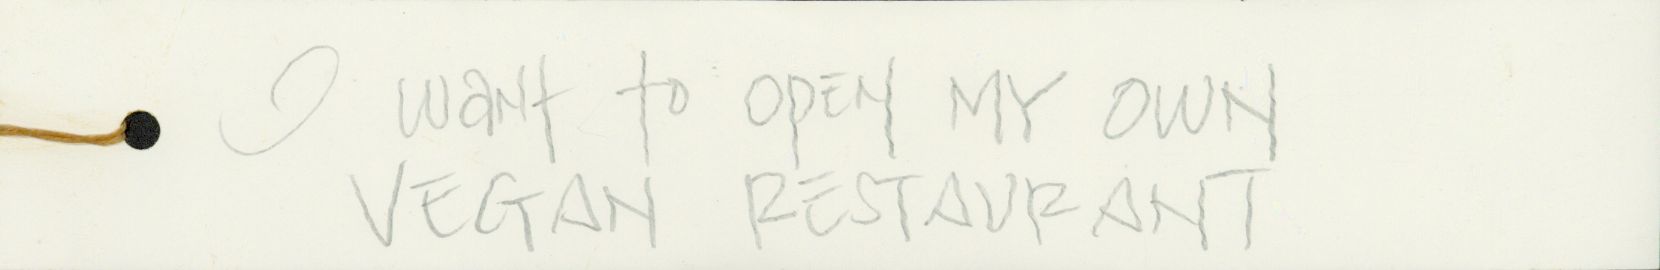 I want to open MY OWN
VEGAN RESTAURANT